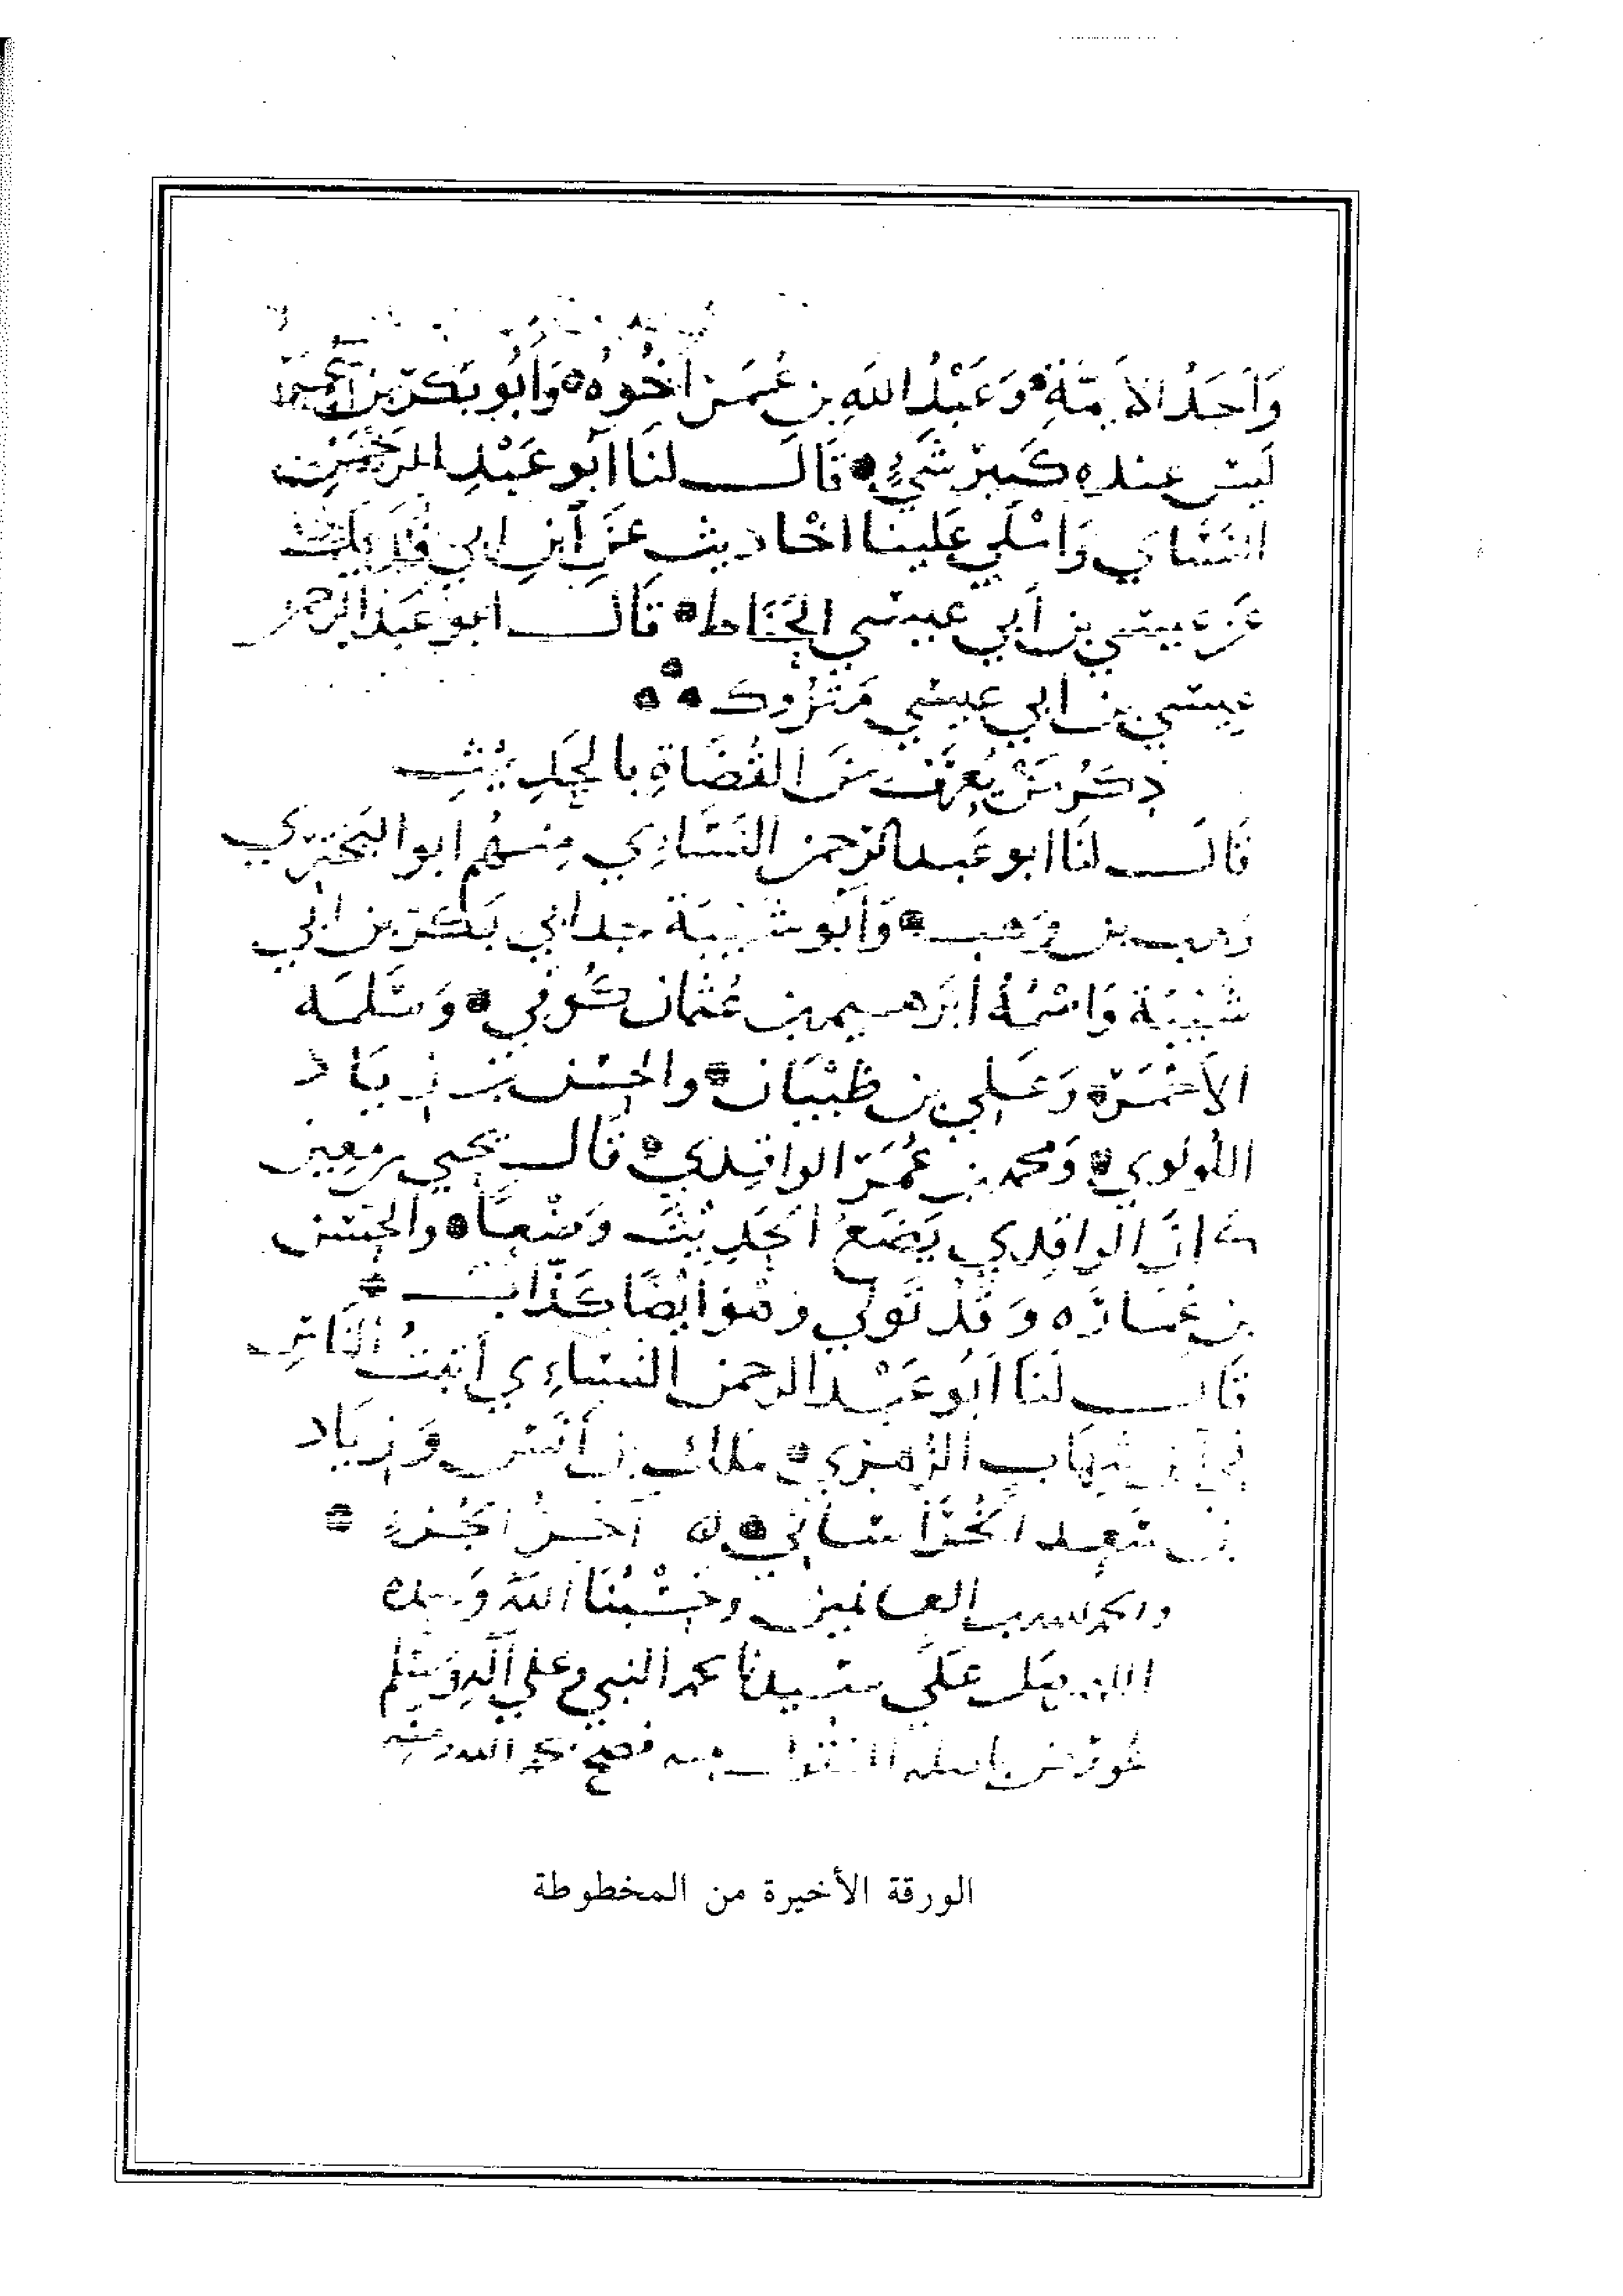 وَأَحَدُ الأَيِمَّةِ وَعَبْدُ اللهِ بن عُمَر أَخُوهُ وَأَبُو بَكْر بن
لَيسَ عنده كبير شَيءٍ قَالَ لنَا أَبو عَبْدِ الرَحْمَن
النَسَاي وَامْلَي عَلَينا احَاديث عَن ابنِ ابي فُدَيك
عَن عيسَي بن أَبي عيسَي الحَنَّاط قَالَ ابو عَبد الرحمن
عيسَي بن ابي عيسَي مَترُوك
ذِكرُ مَنْ يُعرَف مِنَ القُضَاةِ بالحَدِيثِ
قَالَ لنَا ابو عَبد الرَحمن النَسَاءِي مِنهُم ابو البَختري
وَهب بن وَهب وَأَبُو شَيبَة جد ابي بَكر بن ابي
شَيبَة وَاسْمُهُ ابرَهيم بن عُثمان كُوفي وَسَلمَه
الأَحمَر وَعَلي بن ظَبْيَان والحسَن بن زيَاد
اللُولُوي وَمحمد بن عُمَر الواقدي قَالَ يحيي بن معين
كانَ الواقدِي يَضَعُ الحَدِيثَ وَضْعًا والحسَن
بن عُمَارَه وَقَدْ تَولي وَهُوَ ايْضًا كَذَّابٌ
قَالَ لنَا أَبُو عَبْد الرحمن النسَاءِي أَثبَتُ النَاسِ
في ابن شِهَاب الزُهري مَلك بن أَنَس وَزيَاد
بن سَعيد الخُرَاسَاني آخِرُ الجُزءِ
والحمد لله رب العالمين وحَسْبُنَا اللهُ وَحده
اللهم صَل عَلَي سَيدنا محمد النبي وعلي آلِهِ وَسَلم
عُورض باصله المنقول منه فصح بحمد الله ومنه
الورقة الأخيرة من المخطوطة